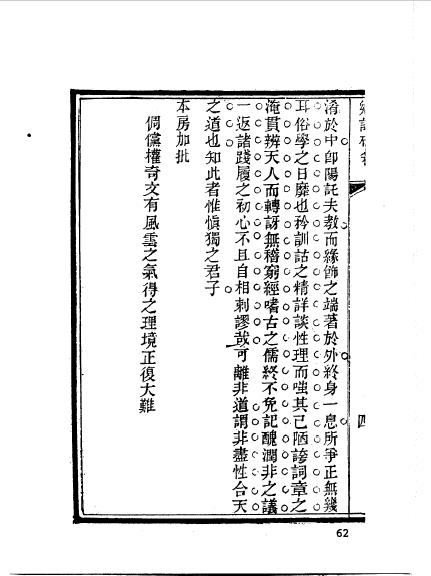 四
淆於中卽陽託夫敎而緣飾之端著於外終身一息所爭正無幾
耳俗學之日靡也矜訓詁之精詳談性理而嗤其已陋謗詞章之
淹貫辨天人而轉訝無稽窮經嗜古之儒終不免記醜潤非之議
一返諸踐履之初心不且自相剌謬哉可離非道謂非盡性合天
之道也知此者惟愼獨之君子
本房加批
倜儻權奇文有風雲之氣得之理境正復大難
62